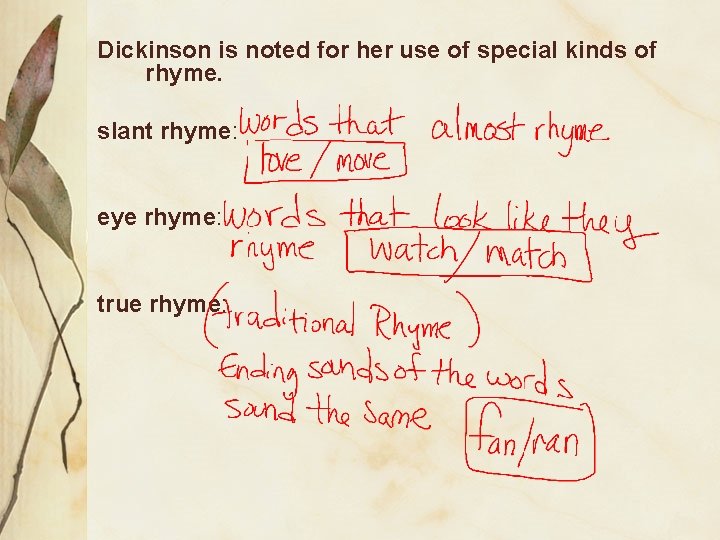 Dickinson is noted for her use of special kinds of
rhyme.
slant rhyme: words that almost rhyme
love / move
eye rhyme: words that look like they
rhyme watch / match
true rhyme: (traditional Rhyme)
Ending sounds of the words
sound the same fan/ran